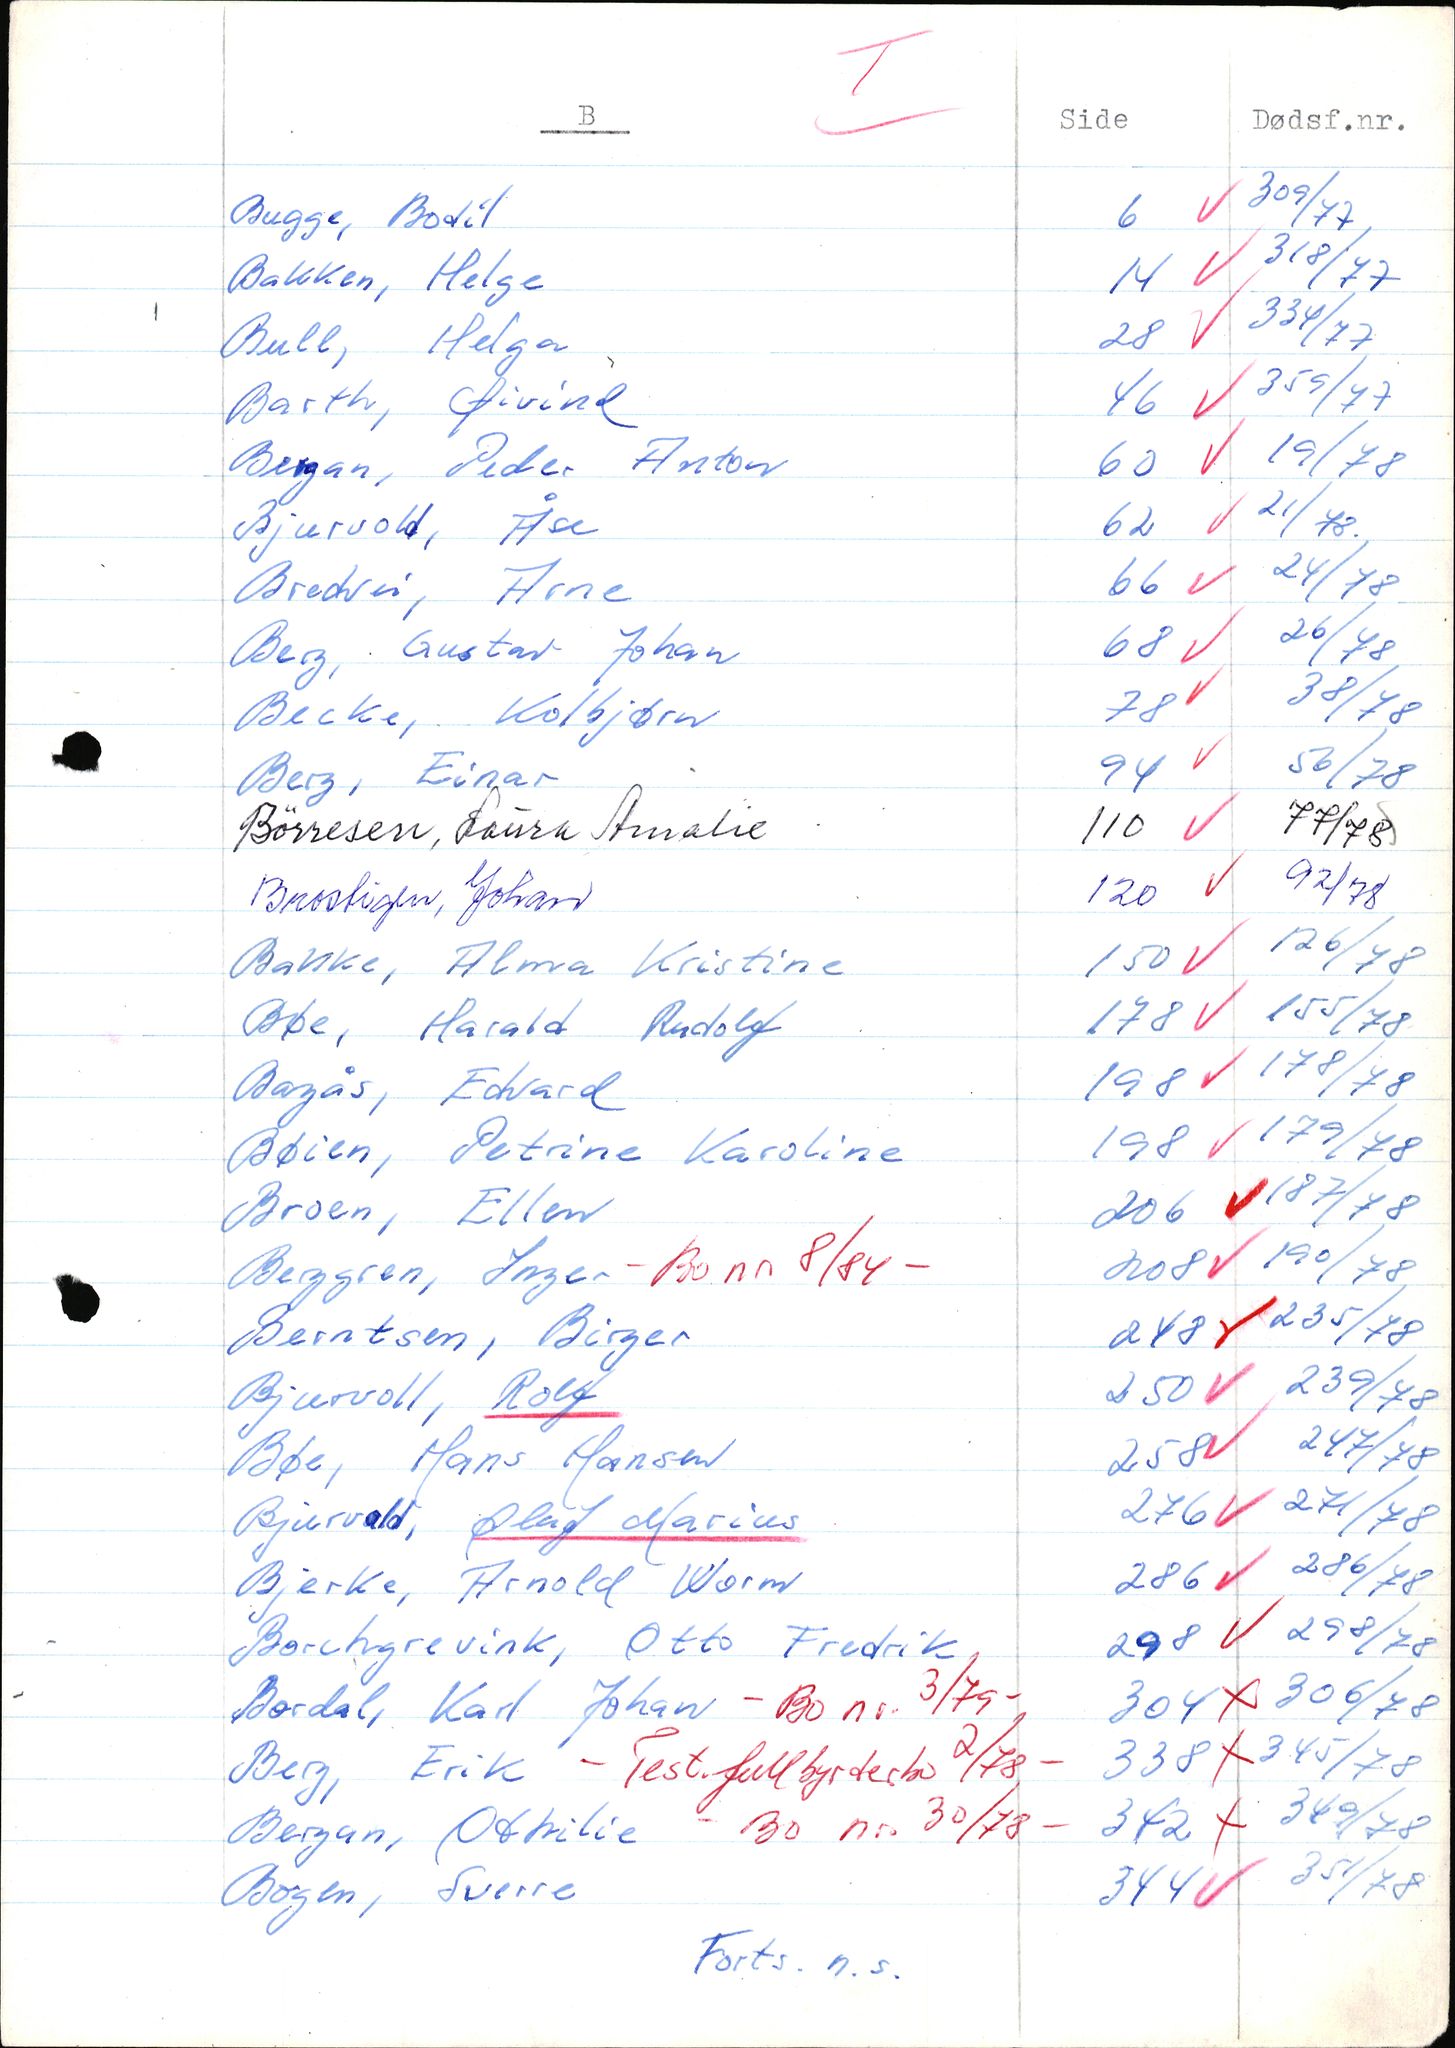 I
B Side Dødsf.nr.
Bugge, Bodil 6 ✓ 309/77
Bakken, Helge 14 ✓ 318/77
Bull, Helga 28 ✓ 334/77
Barth, Øivind 46 ✓ 359/77
Bergan, Peder Anton 60 ✓ 19/78
Bjurvold, Åse 62 ✓ 21/78.
Bredvei, Arne 66 ✓ 24/78
Berg, Gustav Johan 68 ✓ 26/78
Becke, Kolbjørn 78 ✓ 38/78
Berg, Einar 94 ✓ 56/78
Börresen, Laura Amalie 110 ✓ 77/78
Brostigen, Johan 120 ✓ 92/78
Bakke, Alma Kristine 150 ✓ 126/78
Bøe, Harald Rudolf 178 ✓ 155/78
Bagås, Edvard 198 ✓ 178/78
Bøien, Petrine Karoline 198 ✓ 179/78
Broen, Ellen 206 ✓ 187/78
Berggren, Inger - Bo nr 8/84 - 208 ✓ 190/78
Berntsen, Birger 248 ✓ 235/78
Bjurvoll, Rolf 250 ✓ 239/78
Bøe, Hans Hansen 258 ✓ 247/78
Bjurvald, Olaf Marius 276 ✓ 271/78
Bjerke, Arnold Worm 286 ✓ 286/78
Borchgrevink, Otto Fredrik 298 ✓ 298/78
Bordal, Karl Johan - Bo nr. 3/79 - 304 x 306/78
Berg, Erik - Test.fullbyrderbo 2/78 - 338 x 345/78
Bergan, Othilie - Bo nr. 30/78 - 342 x 349/78
Bogen, Sverre 344 ✓ 351/78
Forts. n.s.